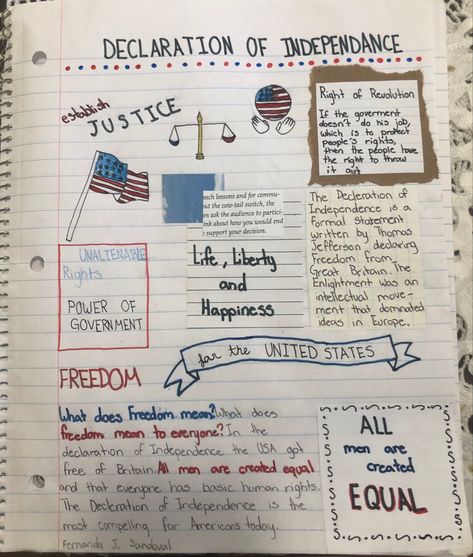 DECLARATION OF INDEPENDANCE
establish
JUSTICE
Right of Revolution
If the goverment
doesn't do his job,
which is to protect
people's rights,
then the people have
the right to throw
it out
each lessons and for commu-
out the cow-tail switch, the
en ask the audience to partici-
ink about how you would end
support your decision.
Life, Liberty
and
Happiness
The Declaration of
Independence is a
formal statement
written by Thomas
Jefferson declaring
Freedom from
Great Britain. The
Enlightment was an
intellectual move-
ment that dominated
ideas in Europe.
UNALIENABLE
Rights
POWER OF
GOVERNMENT
for the UNITED STATES
FREEDOM
What does Freedom mean? What does
freedom mean to everyone? In the
declaration of Independence the USA got
free of Britain. All men are created equal
and that everyone has basic human rights.
The Declaration of Independence is the
most compelling for Americans today.
Fernanda J. Sandoval
ALL
men are
created
EQUAL